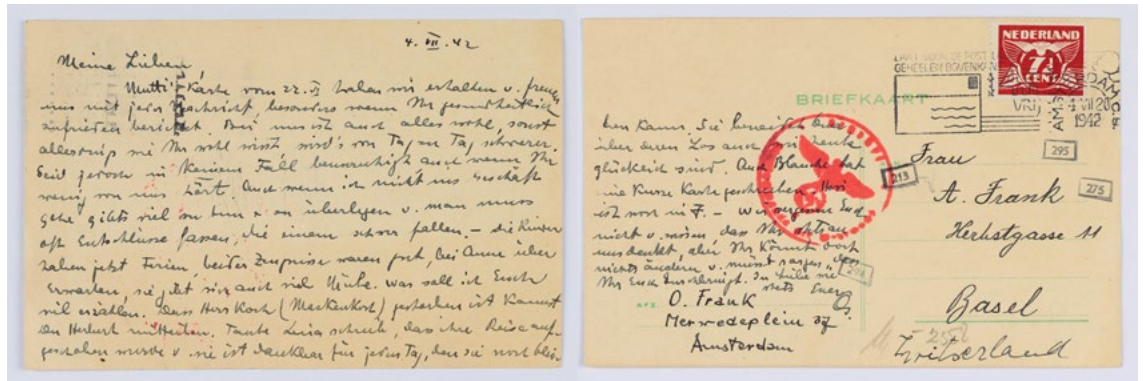 4. VII. 42
Meine Lieben
Mutti's Karte vom 22. VI haben wir erhalten u. freuen
uns mit jeder Nachricht besonders wenn Ihr gesundheitlich
zufrieden berichtet. Bei uns ist auch alles wohl, sonst
allerdings wie Ihr wohl wisst wird's von Tag zu Tag schwerer.
Seid jedoch in keinem Fall beunruhigt auch wenn Ihr
wenig von uns hört. Auch wenn ich nicht ins Geschäft
gehe gibts viel zu tun u. zu überlegen u. man muss
oft Entschlüsse fassen, die einem schwer fallen. – die Kinder
haben jetzt Ferien, beider Zeugnisse waren gut, bei Anne über
Erwarten, sie gibt sich auch viel Mühe. Was soll ich Euch
viel erzählen. Dass Herr Koch (Mackenkoch) gestorben ist kannst
Du Herbert mitteilen. Tante Luise schreibt, dass ihre Reise auf-
geschoben wurde u. sie ist dankbar für jeden Tag, den sie noch blei-
ben kann. Sie
über deren Los auch
glücklich sind. Auch Blanche hat
eine kurze Karte geschrieben.
ist noch in F. – Wir vergessen Euch
nicht u. wissen dass Ihr
uns denkt, aber Ihr könnt doch
nichts ändern u. müsst sorgen dass
Ihr Euch durchbringt. In Liebe wie
stets Euer
O.
BRIEFKAART
NEDERLAND
7½
CENT
GEHEELEN BOVENKANT
AMSTERDAM C.S.
VRIJ 4 VII 20
1942
295
213
275
Frau
A. Frank
Herbstgasse 11
Basel
Zwitserland
AFZ.
O. Frank
Merwedeplein 37
Amsterdam